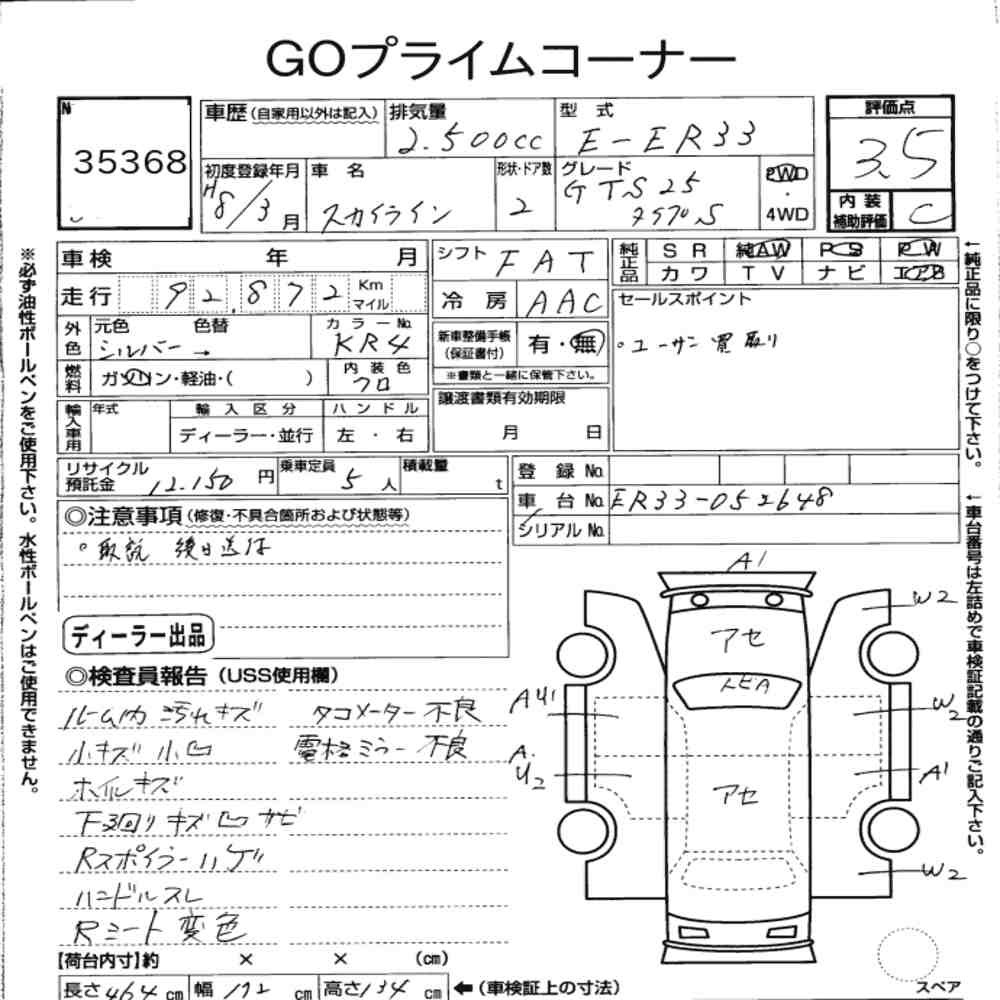 GOプライムコーナー
N
35368
車歴(自家用以外は記入)
排気量
2.500cc
型 式
E-ER33
評価点
3.5
内装
補助評価
C
初度登録年月
H8/3月
車 名
スカイライン
形状・ドア数
2
グレード
GTS25
タイプS
2WD
・
4WD
車検 年 月
シフト FAT
純正品
SR 純AW PS PW
カワ TV ナビ エアB
走行 92,872 Km
マイル
冷房 AAC
セールスポイント
・ユーザー買取り
外色
元色 色替
シルバー →
カラーNo.
KR4
新車整備手帳
(保証書付)
有・無
※書類と一緒に保管下さい。
燃料
ガソリン・軽油・( )
内装色
クロ
輸入車用
年式
輸入区分
ディーラー・並行
ハンドル
左 ・ 右
譲渡書類有効期限
月 日
リサイクル
預託金
12.150円
乗車定員
5人
積載量
t
登録No.
車台No. ER33-052648
シリアルNo.
◎注意事項(修復・不具合箇所および状態等)
・取説 後日送付
ディーラー出品
◎検査員報告(USS使用欄)
ルーム内汚れキズ タコメーター不良
小キズ小凹 電格ミラー不良
ホイルキズ
下廻りキズ凹サビ
Rスポイラーハゲ
ハンドルスレ
Rシート変色
【荷台内寸】約 × × (cm)
長さ464cm 幅172cm 高さ134cm ←(車検証上の寸法)
A1
W2
アセ
トビA
AU1
W2
A.
U2
アセ
A1
W2
スペア
※必ず油性ボールペンをご使用下さい。水性ボールペンはご使用できません。
←純正品に限り○をつけて下さい。
←車台番号は左詰めで車検証記載の通りご記入下さい。